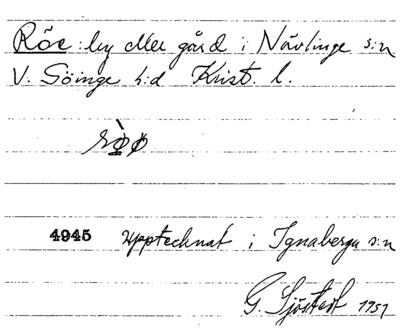 Röe: by eller gård i Nävlinge s:n
V. Göinge h:d Krist. l.
4945 Upptecknat i Ignaberga s:n
G. Sjöstedt 1951